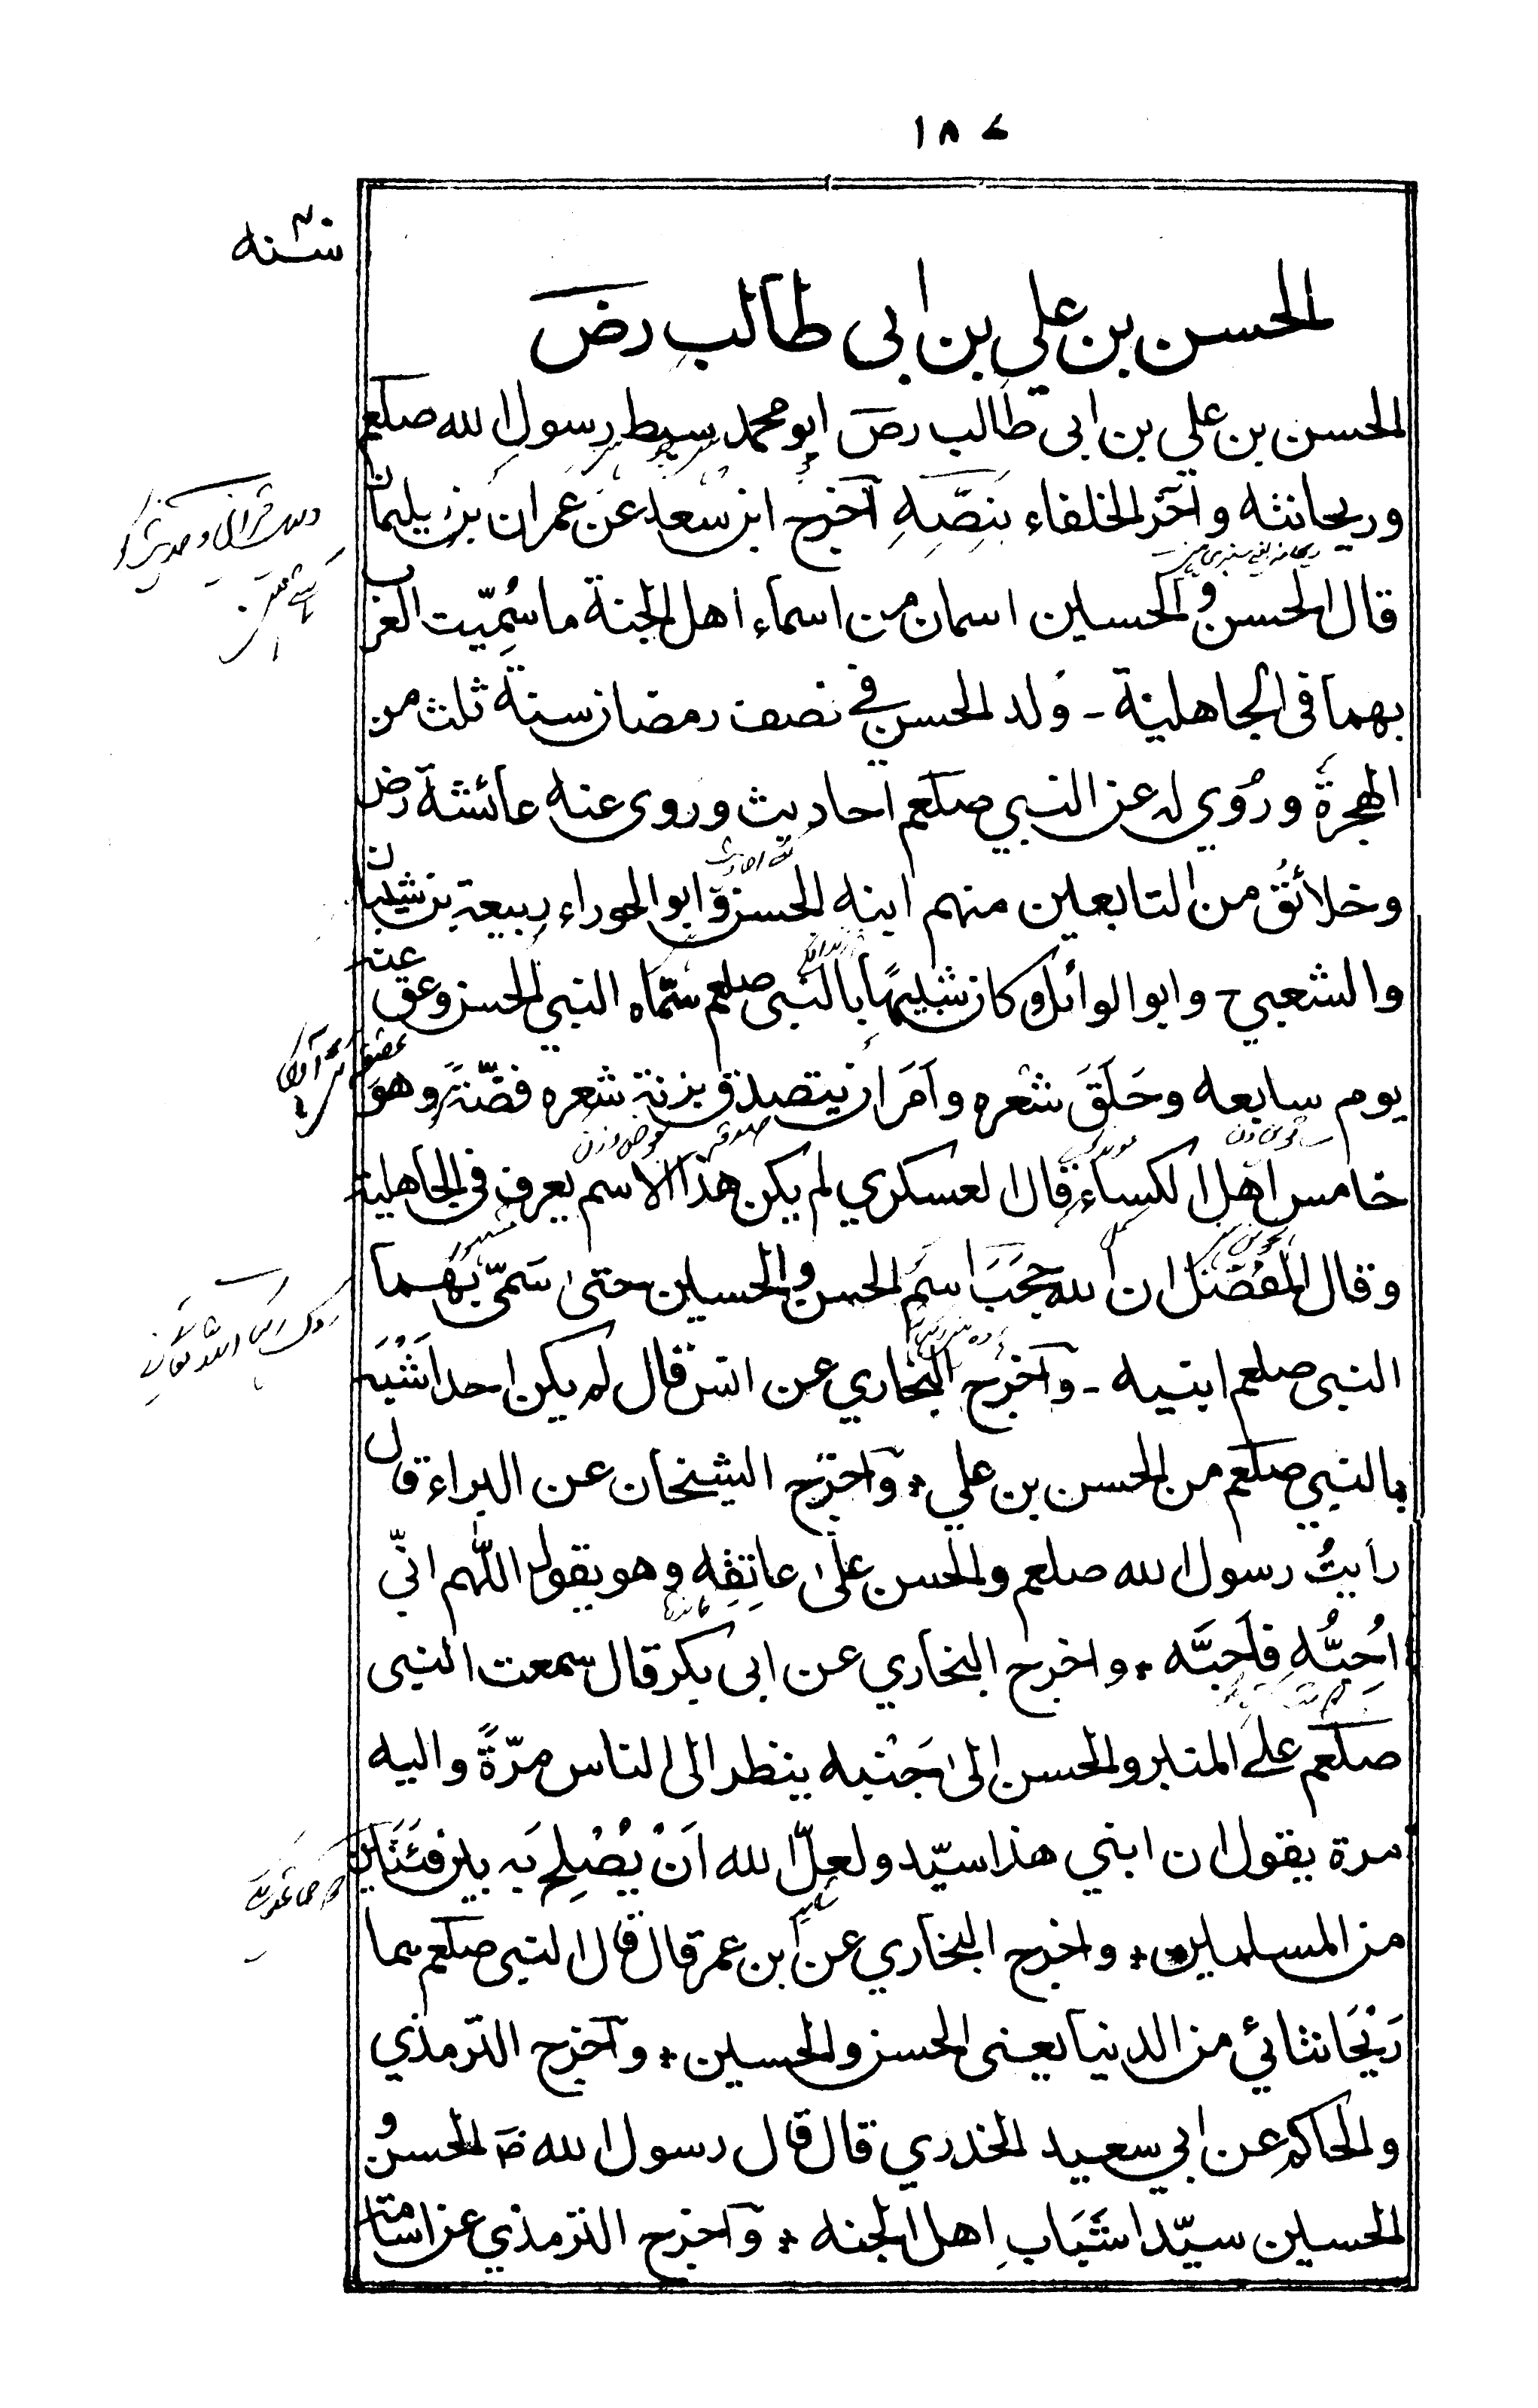 ١٨٧
الحسن بن علي بن ابي طالب رض
الحسن بن علي بن ابي طالب رض ابو محمد سبط رسول الله صلعم
وريحانته وآخر الخلفاء بنَصِّهِ آخرج ابن سعد عن عمران بن سليمان
قال الحسن والحسين اسمان من اسماء اهل الجنة ما سُمِّيت العرب
بهما في الجاهلية - وُلد الحسن في نصف رمضان سنة ثلث من
الهجرة ورُوي له عن النبي صلعم احاديث وروى عنه عائشة رض
وخلائقُ من التابعين منهم ابنه الحسن وابو الحوراء ربيعة بن شيبان
والشعبي وابو الوائل وكان شبيهًا بالنبي صلعم سمّاه النبي الحسن وعق عنه
يوم سابعه وحَلَقَ شعره واَمَرَ ان يتصدق بزنة شعره فضّةً وهو
خامس اهل الكساء قال العسكري لم يكن هذا الاسم يعرف في الجاهلية
وقال المفضل ان الله حجَبَ اسمَ الحسن والحسين حتى سَمّى بهما
النبي صلعم ابنيه - وآخرج البخاري عن انس قال لم يكن احد اَشْبَه
بالنبي صلعم من الحسن بن علي * وآخرج الشيخان عن البراء قال
رايتُ رسول الله صلعم والحسن على عاتِقِه وهو يقول اللّهم انّي
اُحِبُّه فاَحِبَّه * واخرج البخاري عن ابي بكر قال سمعت النبي
صلعم على المنبر والحسن الى جَنْبه ينظر الى الناس مرّةً واليه
مرة يقول ان ابني هذا سيّد ولعلّ الله اَنْ يُصْلِحَ به بين فئتَين
من المسلمين * واخرج البخاري عن ابن عمر قال قال النبي صلعم هما
رَيْحَانتائي من الدنيا يعنى الحسن والحسين * وآخرج الترمذي
والحاكم عن ابي سعيد الخدري قال قال رسول الله صَ الحسن و
الحسين سيّدا شَبَابِ اهل الجنه * وآخرج الترمذي عن اسامة